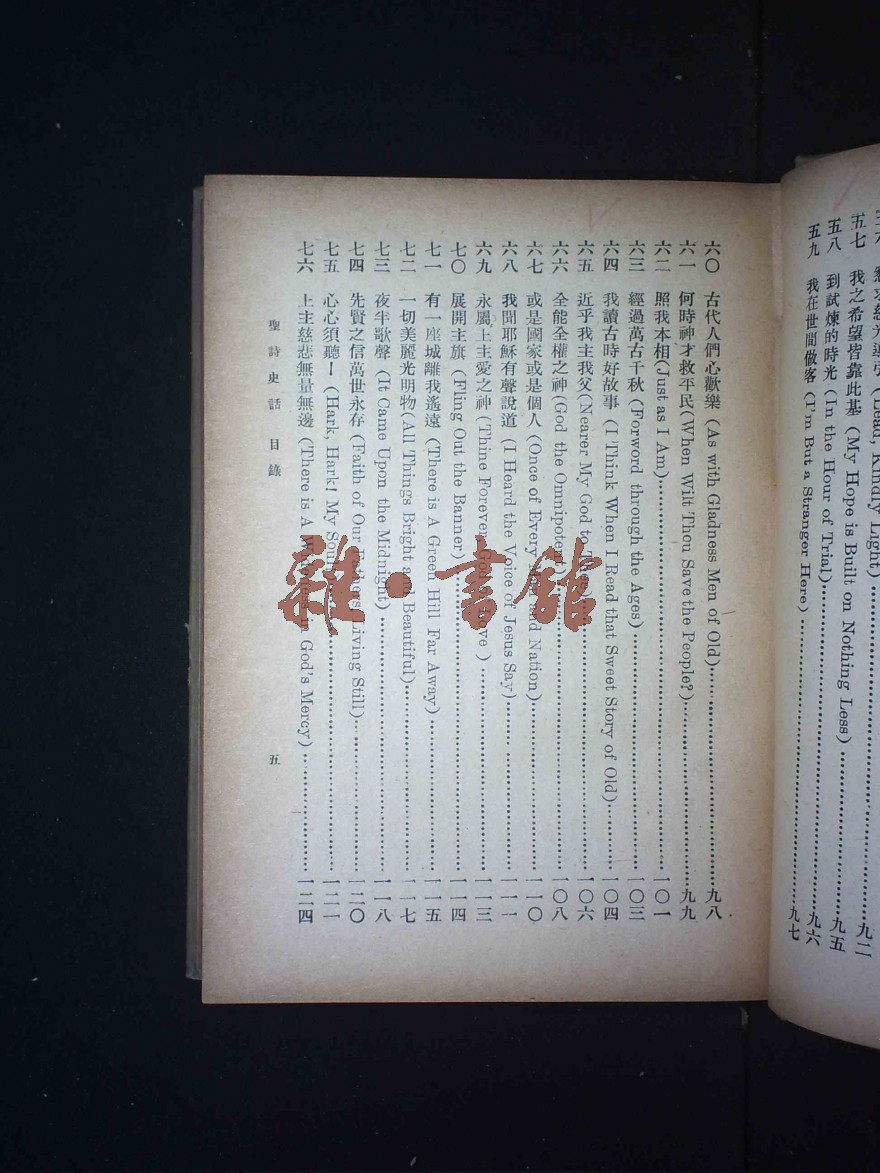 五七 我之希望皆靠此基 (My Hope is Built on Nothing Less)……九五
五八 到試煉的時光 (In the Hour of Trial)……九六
五九 我在世間做客 (I'm But a Stranger Here)……九七
六〇 古代人們心歡樂 (As with Gladness Men of Old)……九八
六一 何時神才救平民 (When Wilt Thou Save the People?)……九九
六二 照我本相 (Just as I Am)……一〇一
六三 經過萬古千秋 (Forword through the Ages)……一〇三
六四 我讀古時好故事 (I Think When I Read that Sweet Story of Old)……一〇四
六五 近乎我主我父 (Nearer My God to Thee)……一〇六
六六 全能全權之神 (God the Omnipotent)……一〇八
六七 或是國家或是個人 (Once of Every and Nation)……一一〇
六八 我聞耶穌有聲說道 (I Heard the Voice of Jesus Say)……一一一
六九 永屬上主愛之神 (Thine Forever God of Love)……一一三
七〇 展開主旗 (Fling Out the Banner)……一一四
七一 有一座城離我遙遠 (There is A Green Hill Far Away)……一一五
七二 一切美麗光明物 (All Things Bright and Beautiful)……一一七
七三 夜半歌聲 (It Came Upon the Midnight)……一一八
七四 先賢之信萬世永存 (Faith of Our Fathers Living Still)……一二〇
七五 心心須聽！ (Hark, Hark! My Soul)……一二一
七六 上主慈悲無量無邊 (There is A Wideness in God's Mercy)……一二四
聖詩史話 目錄 五
雜·書館